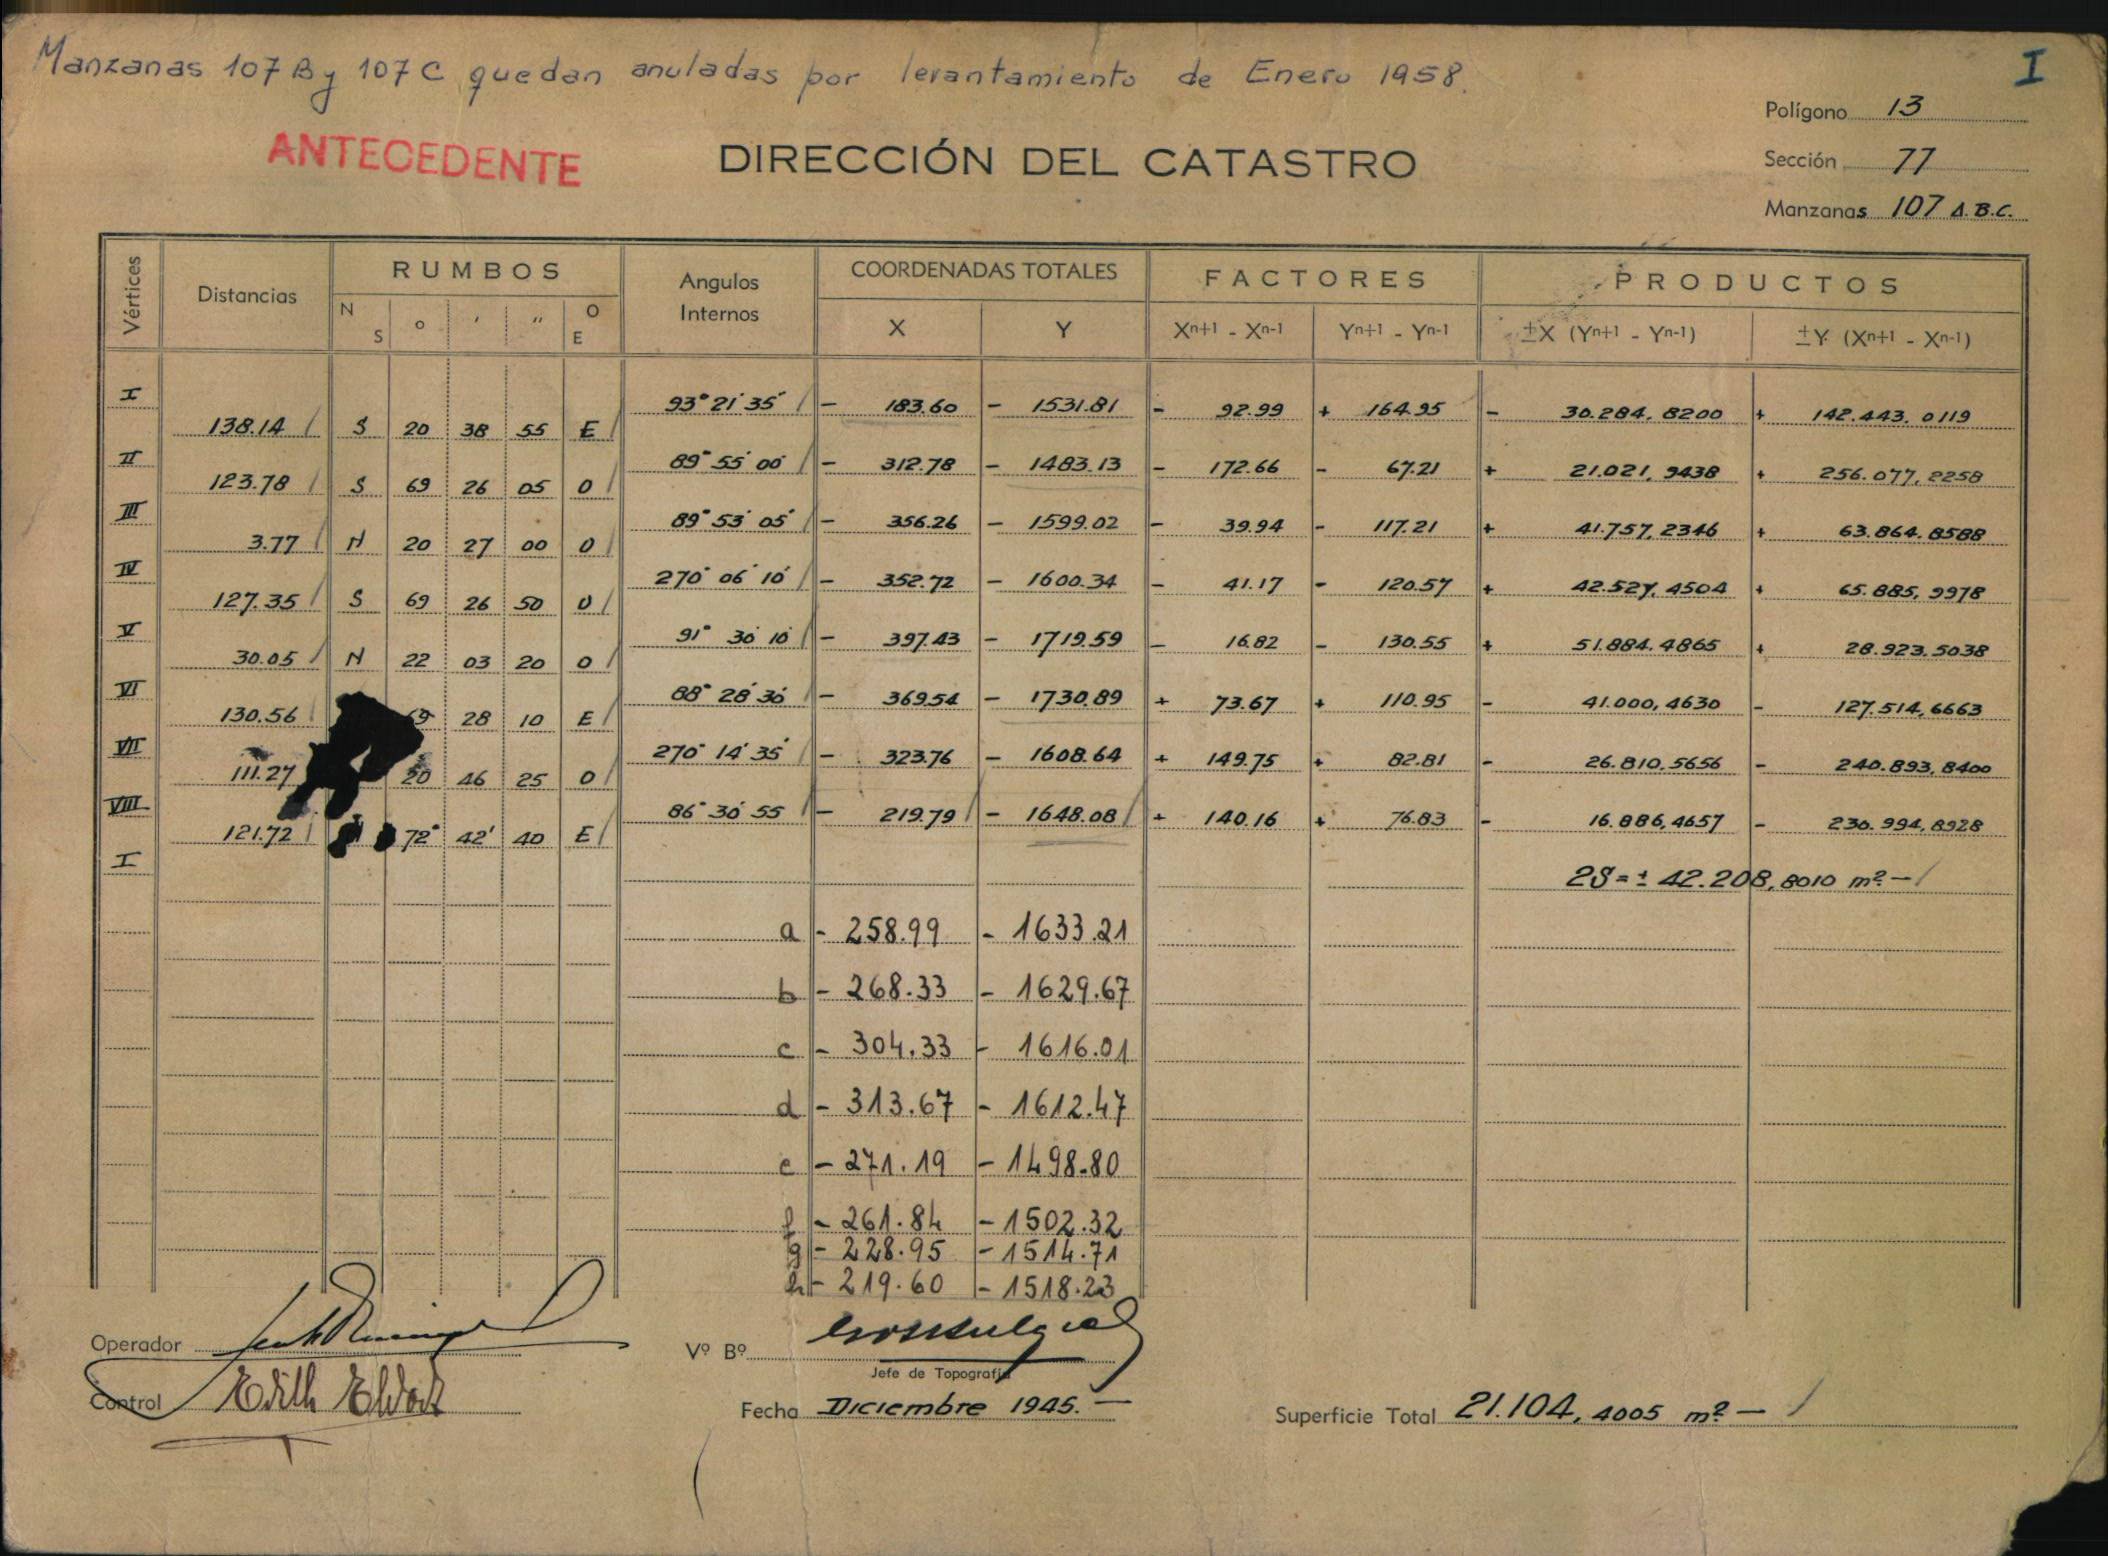 Manzanas 107 B y 107 C quedan anuladas por levantamiento de Enero 1958.
I
ANTECEDENTE
DIRECCIÓN DEL CATASTRO
Polígono 13
Sección 77
Manzanas 107 A.B.C.
Vértices Distancias RUMBOS Angulos Internos COORDENADAS TOTALES FACTORES PRODUCTOS
N S ° ' " O E X Y Xn+1 - Xn-1 Yn+1 - Yn-1 ±X (Yn+1 - Yn-1) ±Y (Xn+1 - Xn-1)
I 93° 21' 35" - 183.60 - 1531.81 - 92.99 + 164.95 - 30.284,8200 + 142.443.0119
138.14 S 20 38 55 E
II 89° 55' 00" - 312.78 - 1483.13 - 172.66 - 67.21 + 21.021,9438 + 256.077,2258
123.78 S 69 26 05 O
III 89° 53' 05" - 356.26 - 1599.02 - 39.94 - 117.21 + 41.757,2346 + 63.864.8588
3.77 N 20 27 00 O
IV 270° 06' 10" - 352.72 - 1600.34 - 41.17 - 120.57 + 42.527,4504 + 65.885,9978
127.35 S 69 26 50 O
V 91° 30' 10" - 397.43 - 1719.59 - 16.82 - 130.55 + 51.884.4865 + 28.923.5038
30.05 N 22 03 20 O
VI 88° 28' 30" - 369.54 - 1730.89 + 73.67 + 110.95 - 41.000,4630 - 127.514,6663
130.56 69 28 10 E
VII 270° 14' 35" - 323.76 - 1608.64 + 149.75 + 82.81 - 26.810,5656 - 240.893,8400
111.27 20 46 25 O
VIII 86° 30' 55" - 219.79 - 1648.08 + 140.16 + 76.83 - 16.886,4657 - 230.994,8928
121.72 N 72° 42' 40 E
I
2S = ± 42.208,8010 m².-
a - 258.99 - 1633.21
b - 268.33 - 1629.67
c - 304.33 - 1616.01
d - 313.67 - 1612.47
e - 271.19 - 1498.80
f - 261.84 - 1502.32
g - 228.95 - 1514.71
h - 219.60 - 1518.23
Operador
Vº Bº
Jefe de Topografía
Control
Fecha Diciembre 1945.-
Superficie Total 21.104,4005 m².-